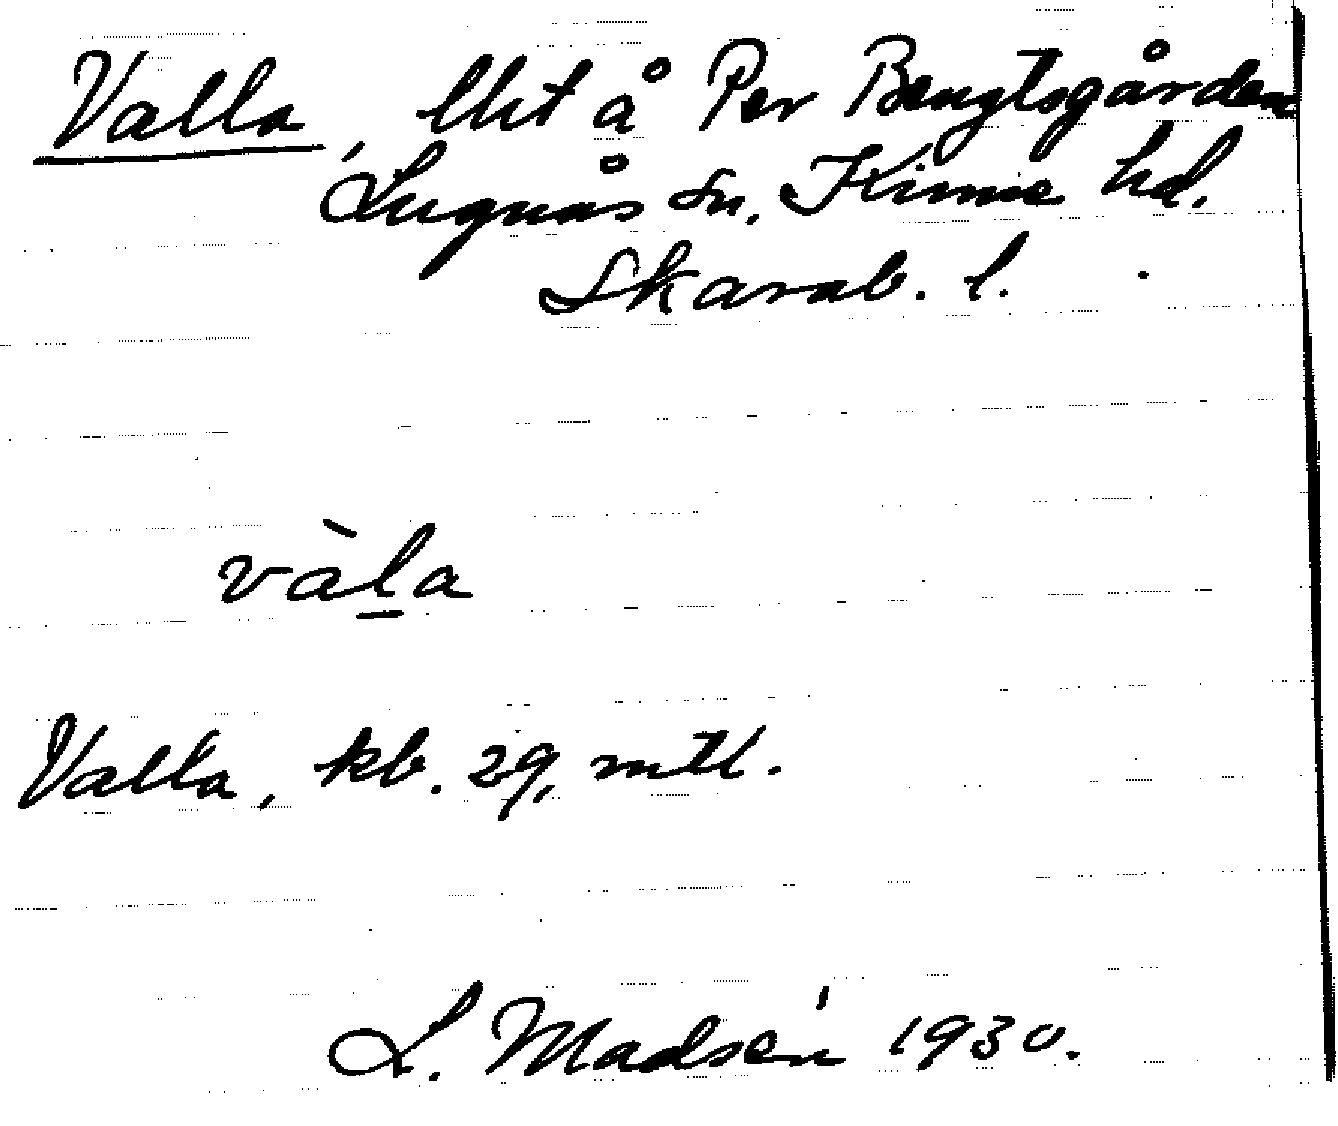 Valla, lht å Per Bengtsgården
Lugnås sn, Kinne hd.
Skarab. l.
vàl̲a
Valla, kb. 29, mtl.
L. Madsén 1930.